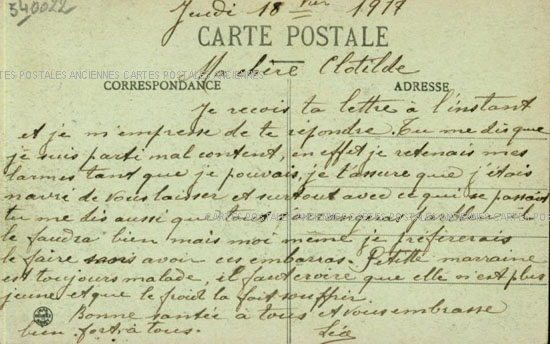 540022
Jeudi 18 bre 1917
CARTE POSTALE
Ma chère Clotilde
CARTES POSTALES ANCIENNES CARTES POSTALES ANCIENNES
CORRESPONDANCE
ADRESSE
Je recois ta lettre à l'instant
et je m'empresse de te répondre. Tu me dis que
je suis parti mal content, en effet je retenais mes
larmes tant que je pouvais, je t'assure que j'étais
navré de vous laisser et surtout avec ce qui se passait
tu me dis aussi que
le faudra bien mais moi même je préfèrerais
le faire sans avoir ces embarras. Petite marraine
est toujours malade, il faut croire que elle n'est plus
jeune et que le froid la fait souffrir.
Bonne santée à tous et vous embrasse
bien fort à tous. Léa